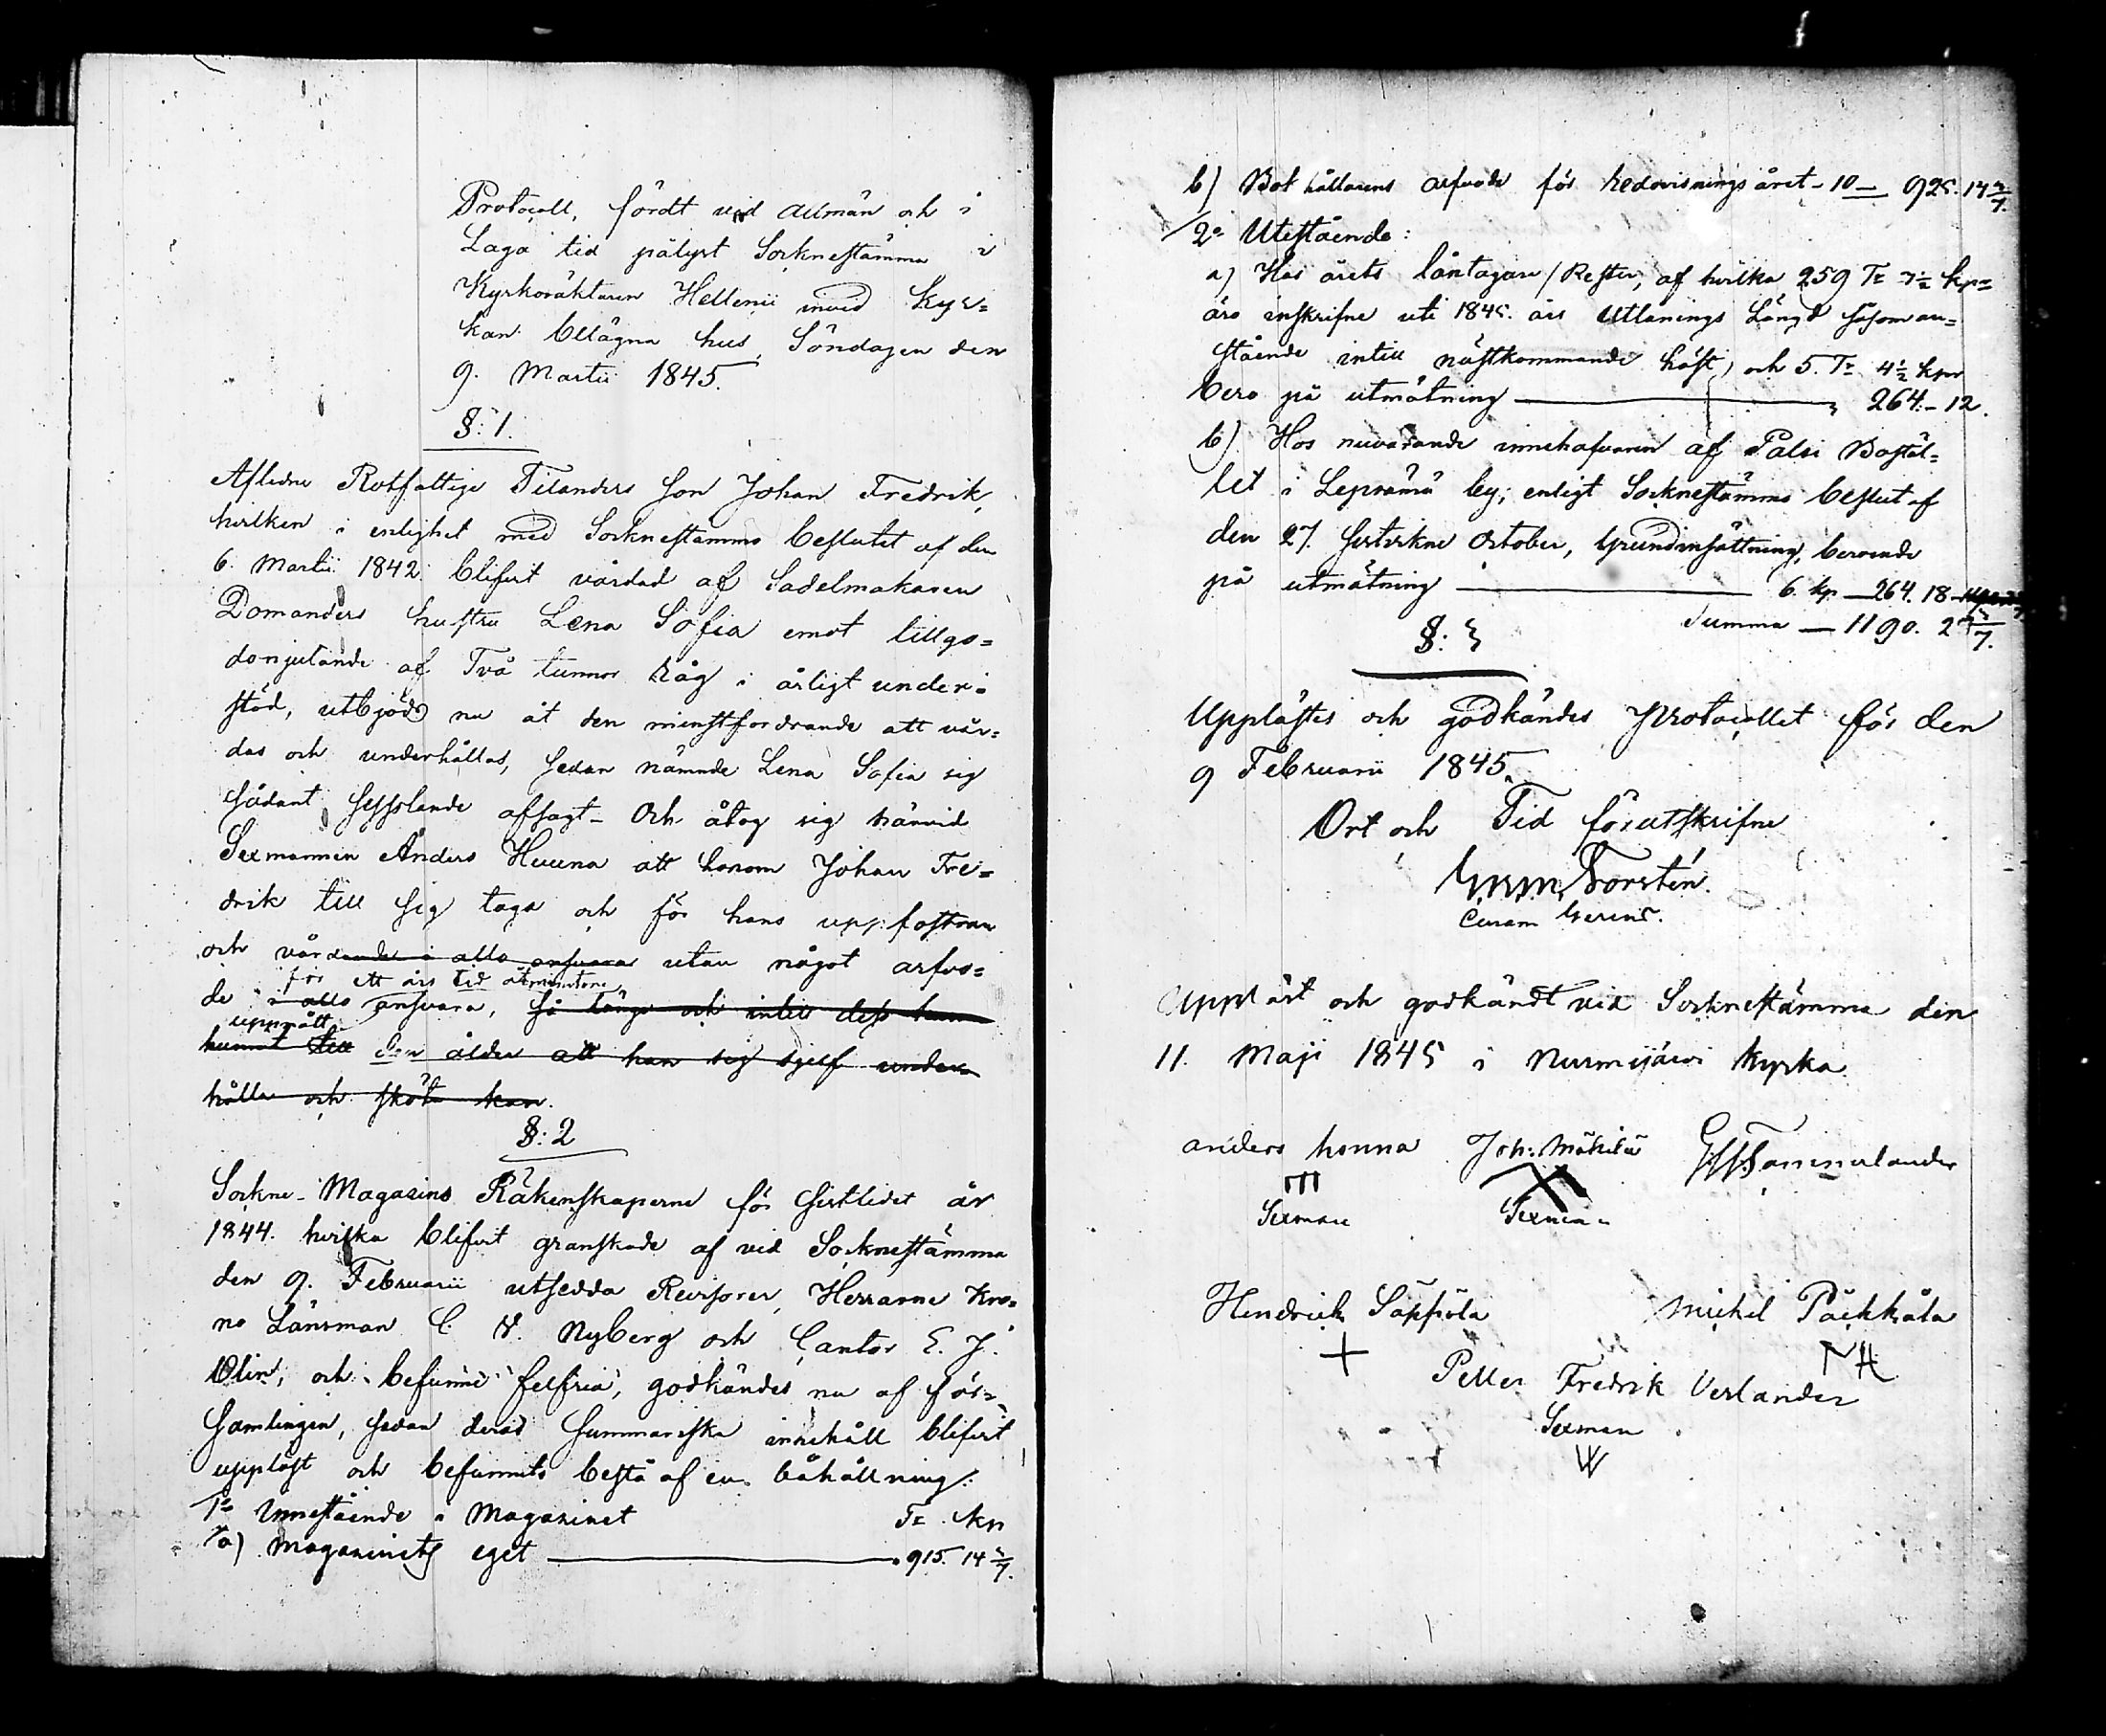 Protocoll, fördt vid allmän och i
Laga tid pålyst Socknestämma i
Kyrkoväktaren Hellenii invid kyr=
kan belägna hus, Söndagen den
9. Martii 1845.
§: 1.
Aflidne Rotfattige Tilanders son Johan Fredrik,
hvilken i enlighet med Socknestämmo beslutet af den
6. Martii 1842. blifvit vårdad af Sadelmakaren
Domanders hustru Lena Sofia emot tillgo=
donjutande af Två tunnor Råg i årligt under=
stöd, utbjöds nu åt den minstfordrande att vår=
das och underhållas, sedan nämnde Lena Sofia sig
sådant sysslande afsagt - Och åtog sig härvid
Sexmannen Anders Huuna att honom Johan Fre=
drik till sig taga och för hans uppfostran
och vårdande i allo ansvara utan något arfvo=
för ett års tid åtminstone
de i allo ansvara, så länge och intill dess han
uppnått
hunnit till den ålder att han sig sjelf under=
hålla och sköta kan.
§: 2
Sockne-Magasins Räkenskaperne för sistlidet år
1844. hvilka blifvit granskade af vid Socknestämma
den 9. Februarii utsedda Revisorer, Herrarne Kro=
no Länsman C. V. Nyberg och Cantor E. J.
Olin, och befunne felfria, godkändes nu af för=
samlingen, sedan deras summariska innehåll blifvit
uppläst och befunnits bestå af en behållning:
1o Innestående i Magasinet Tr kp
a) Magasinets eget 915. 14 2/7.
b) Bokhållarens arfvode för redovisnings året - 10 — 925. 14 2/7.
2o Utestående:
a) Hos årets låntagare (Rester, af hvilka 259 Tr 7 1/2 kp=
äro inskrifne uti 1845. års Utlånings Längd såsom an=
stående intill nästkommande höst, och 5. Tr 4 1/2 kpr
bero på utmätning 264. - 12.
b) Hos nuvarande innehafvaren af Palsi Bostäl=
let i Lepsämä by, enligt Sockne stämmo beslut af
den 27. sistvikne October, Grundinsättning, beroende
på utmätning 6. kp — 264. 18
Summa — 1190. 2 2/7.
§: 3
Upplästes och godkändes Protocollet för den
9 Februarii 1845.
Ort och Tid förutskrifne
Forstén.
Curam Gerens.
Uppläst och godkändt vid Sockne stämma den
11. Maji 1845 i Nurmijärvi Kyrka
anders honna Joh: Mäkilä Sammelander
Sexman Sexman
Hendrick Säppölä Michel Päckkälä
Petter Fredrik Verlander
Sexman